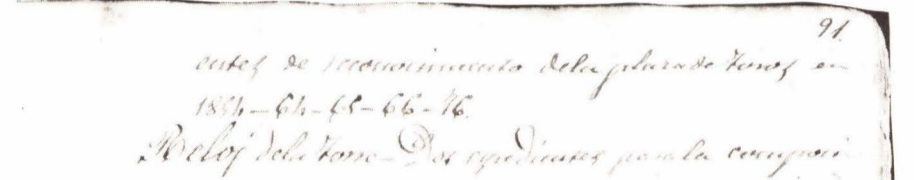 91.
entes de reconocimiento dela plaza de Toros en
1854 - 64 - 65 - 66 - 76.
Reloj dela Torre - Dos espedientes para la composi